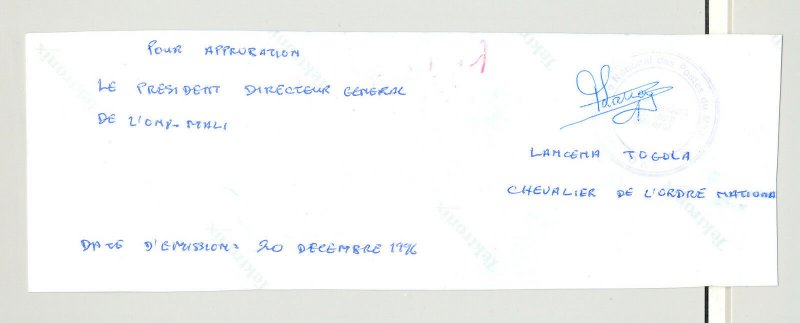 POUR APPROBATION
LE PRESIDENT DIRECTEUR GENERAL
DE L'ONP-MALI
LANCENA TOGOLA
CHEVALIER DE L'ORDRE NATIONA
DATE D'EMISSION: 20 DECEMBRE 1996
Tektronix